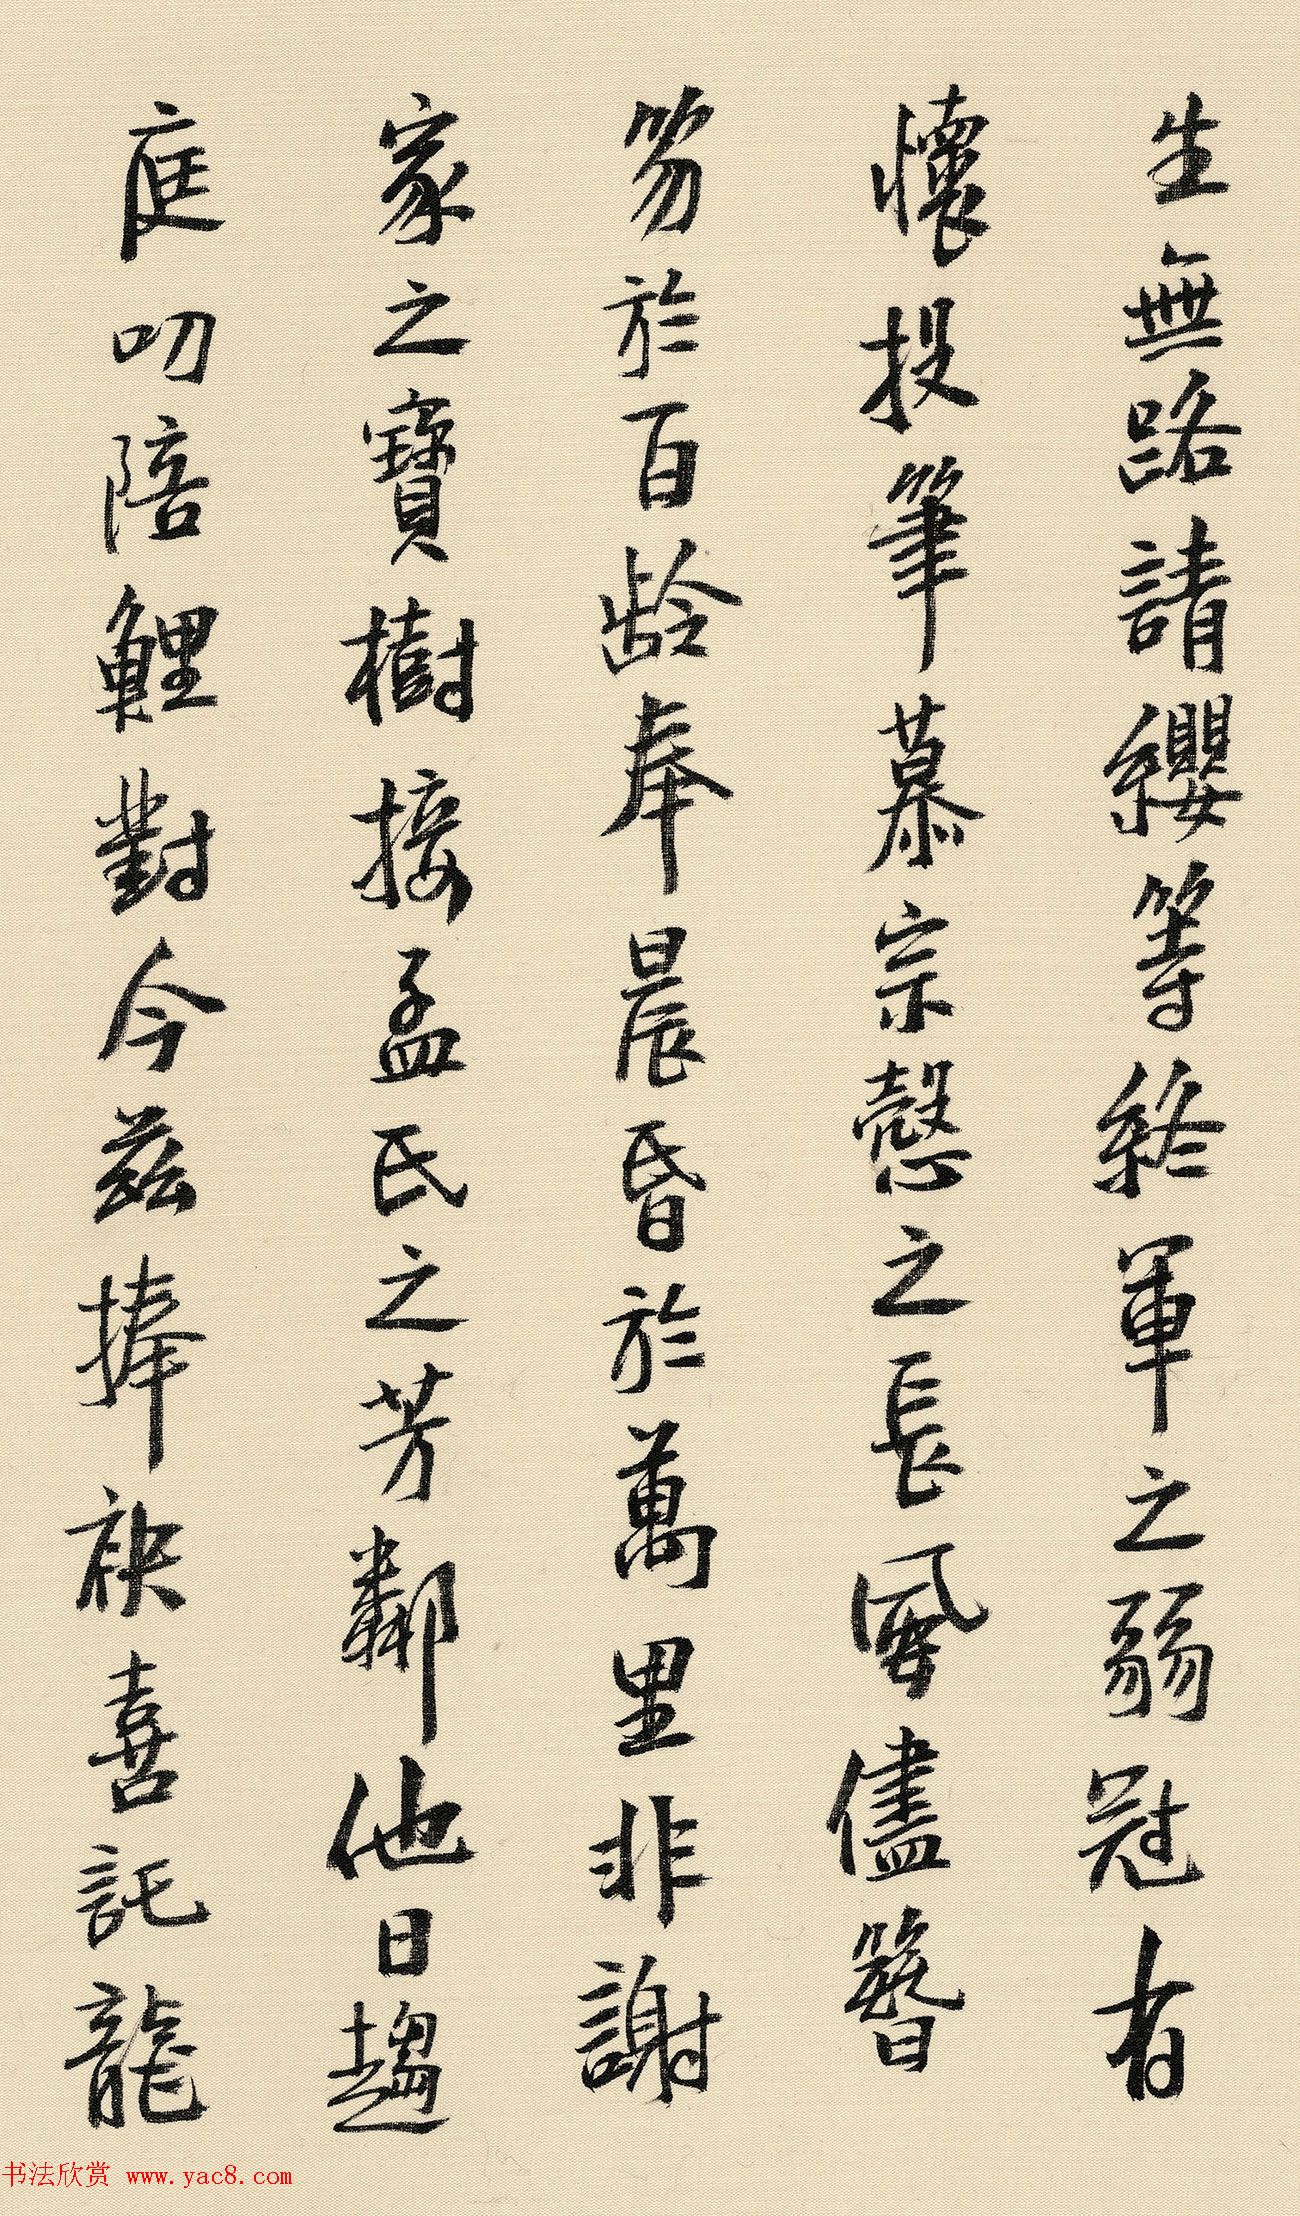 生無路請纓等終軍之弱冠有
懷投筆慕宗慤之長風儘簪
笏於百齡奉晨昏於萬里非謝
家之寶樹接孟氏之芳鄰他日趨
庭叨陪鯉對今茲捧袂喜託龍
书法欣赏 www.yac8.com